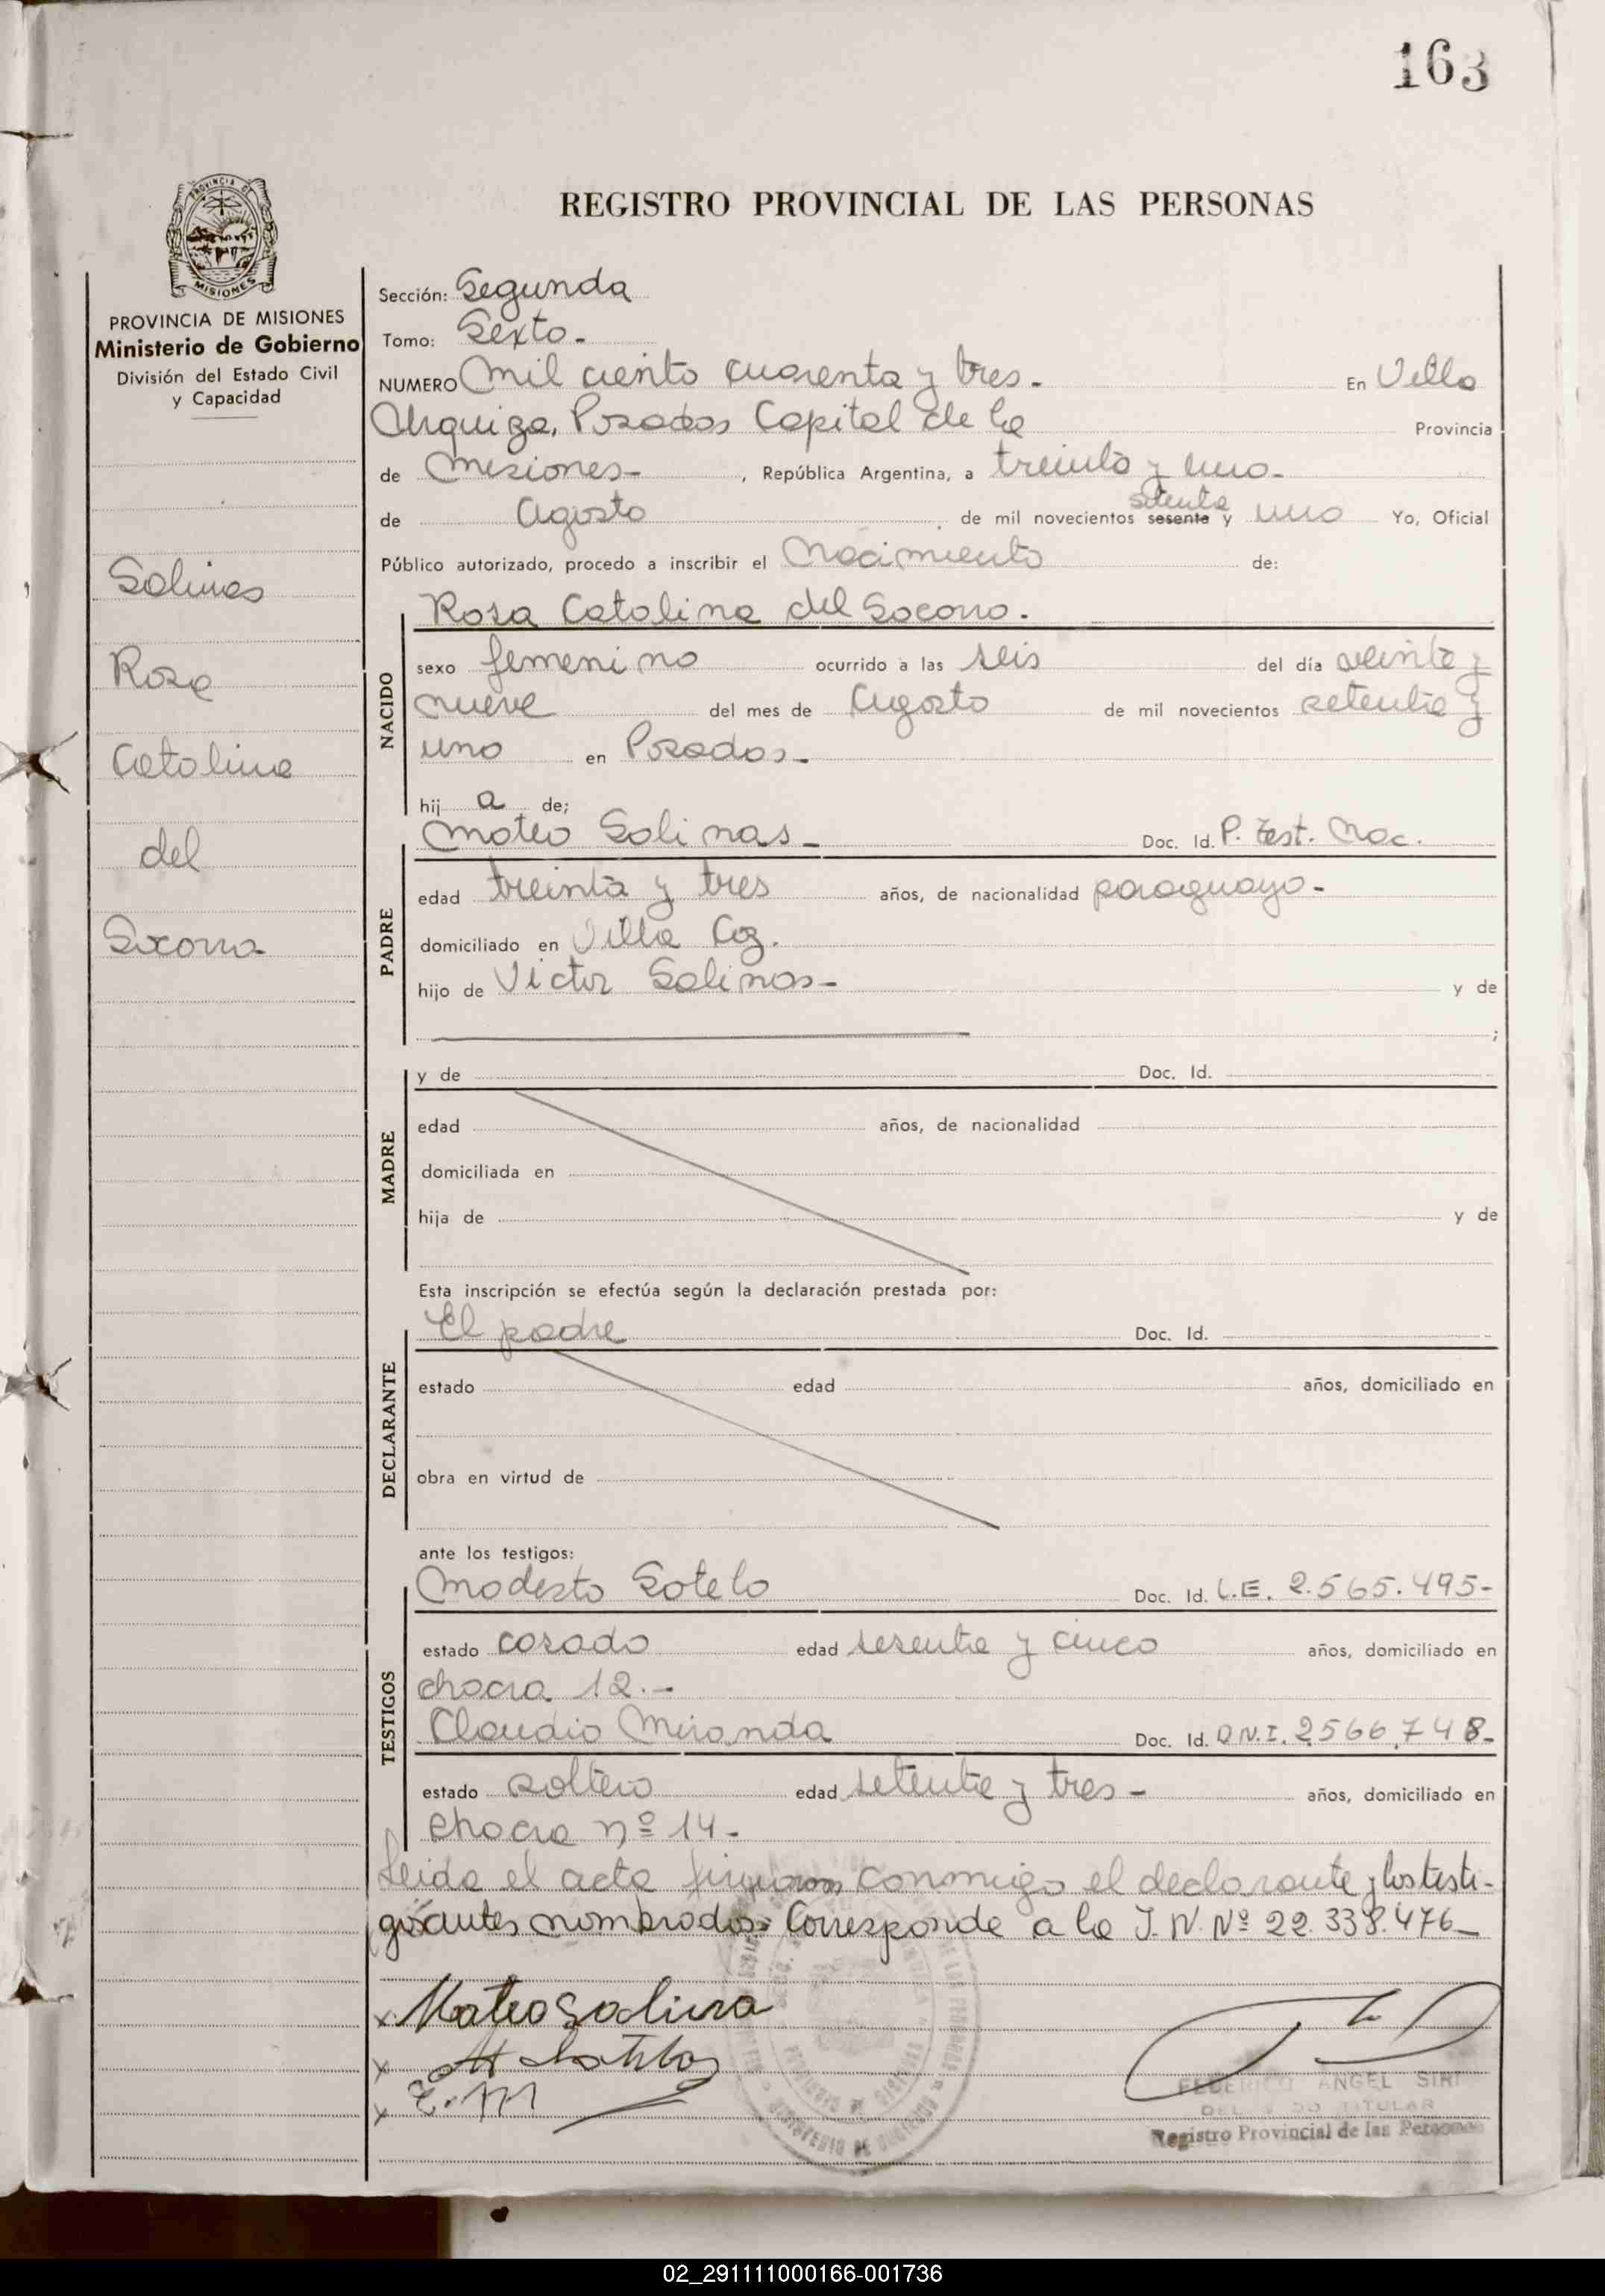 163
PROVINCIA DE
MISIONES
PROVINCIA DE MISIONES
Ministerio de Gobierno
División del Estado Civil
y Capacidad
Salinas
Rosa
Catalina
del
Socorro
REGISTRO PROVINCIAL DE LAS PERSONAS
Sección: Segunda
Tomo: Sexto.
NUMERO mil ciento cuarenta y tres. En Villa
Urquiza, Posadas Capital de la Provincia
de Misiones , República Argentina, a treinta y uno
de Agosto de mil novecientos sesenta setenta y uno Yo, Oficial
Público autorizado, procedo a inscribir el Nacimiento de:
Rosa Catalina del Socorro.
NACIDO
sexo femenino ocurrido a las seis del día veinte y
nueve del mes de Agosto de mil novecientos setenta y
uno en Posadas.
hij a de;
PADRE
Mateo Salinas Doc. Id. P. Test. Nac.
edad treinta y tres años, de nacionalidad paraguayo
domiciliado en Villa Coz.
hijo de Victor Salinas y de
;
MADRE
y de Doc. Id.
edad años, de nacionalidad
domiciliada en
hija de y de
Esta inscripción se efectúa según la declaración prestada por:
DECLARANTE
El padre Doc. Id.
estado edad años, domiciliado en
obra en virtud de
ante los testigos:
TESTIGOS
Modesto Sotelo Doc. Id. L.E. 2.565.495-
estado casado edad sesenta y cinco años, domiciliado en
chacra 12.-
Claudio Miranda Doc. Id. D.N.I. 2566.748-
estado soltero edad setenta y tres - años, domiciliado en
chacra nº 14-
Leida el acta firman conmigo el declarante y los testi-
gos antes nombrados. Corresponde a la I. N. Nº 22.338.476
x Mateo Salina
x
x
FEDERICO ANGEL SIRI
TITULAR
Registro Provincial de las Personas
02_291111000166-001736